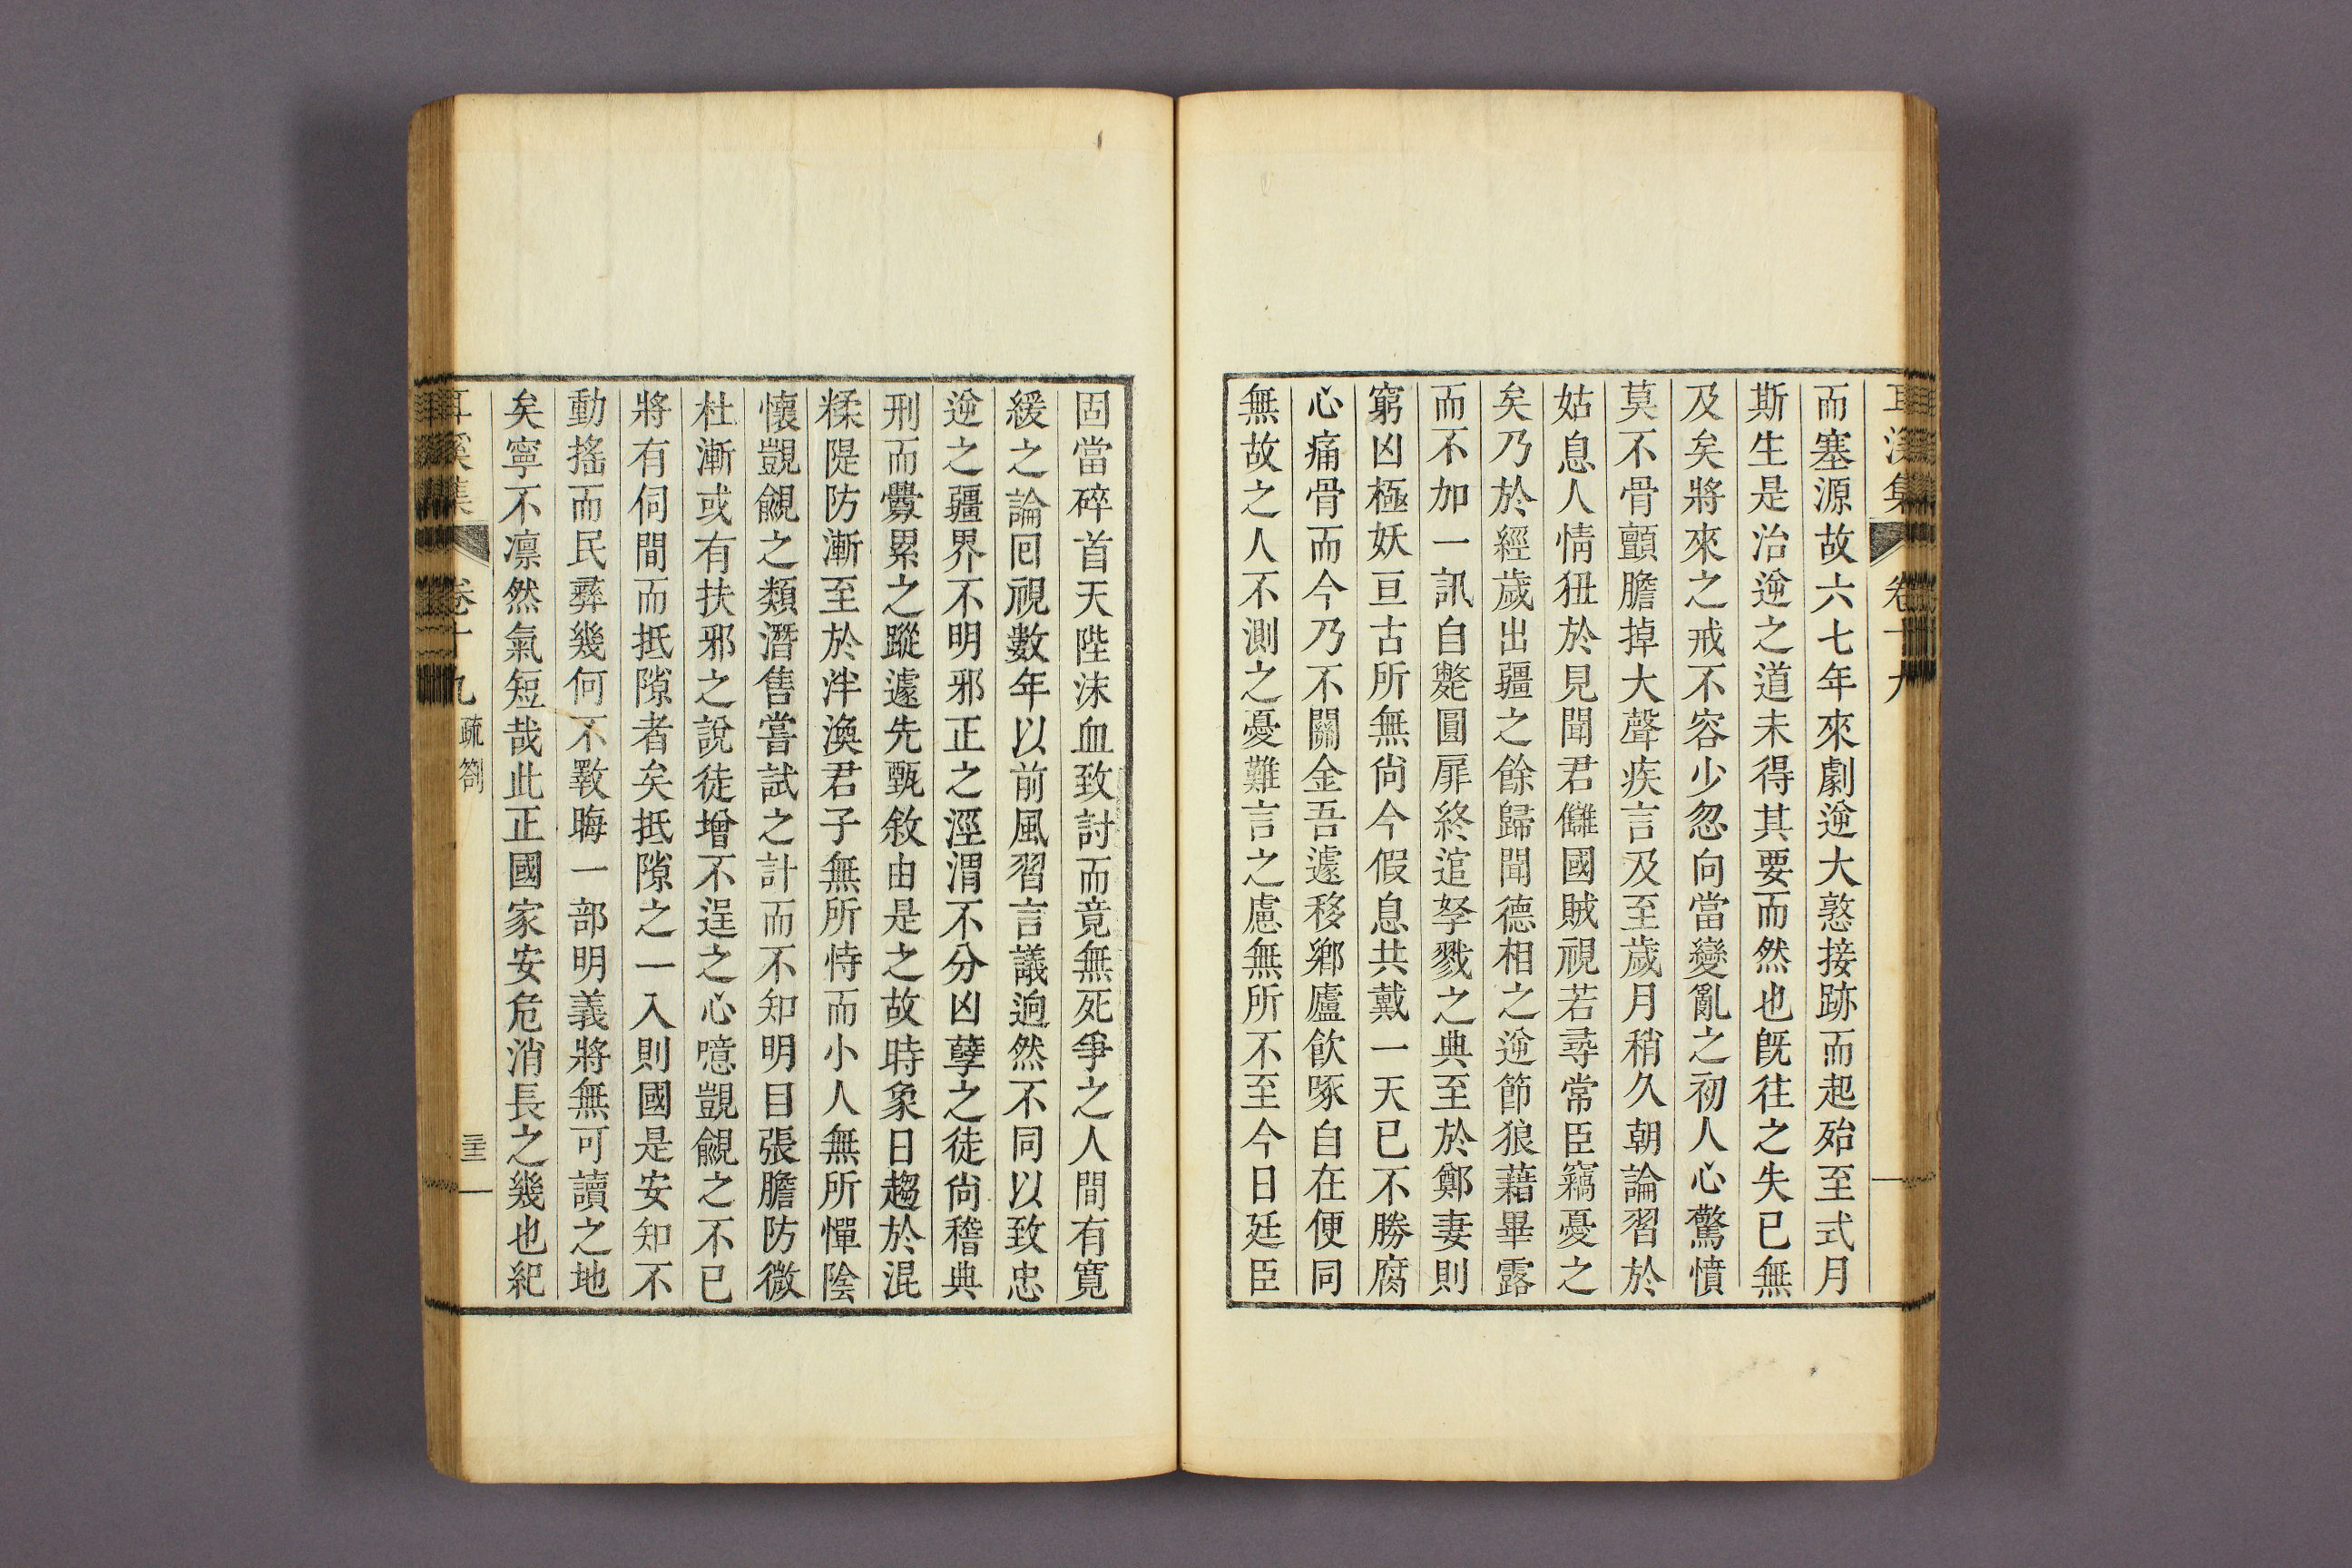 耳溪集 卷十九
而塞源故六七年來劇逆大憝接跡而起殆至式月
斯生是治逆之道未得其要而然也旣往之失已無
及矣將來之戒不容少忽向當變亂之初人心驚憤
莫不骨顫膽掉大聲疾言及至歲月稍久朝論習於
姑息人情狃於見聞君讎國賊視若尋常臣竊憂之
矣乃於經歲出疆之餘歸聞德相之逆節狼藉畢露
而不加一訊自斃圓扉終逭孥戮之典至於鄭妻則
窮凶極妖亘古所無尙今假息共戴一天已不勝腐
心痛骨而今乃不關金吾遽移鄕廬飮啄自在便同
無故之人不測之憂難言之慮無所不至今日廷臣
固當碎首天陛沫血致討而竟無死爭之人間有寬
緩之論囘視數年以前風習言議逈然不同以致忠
逆之疆界不明邪正之涇渭不分凶孼之徒尙稽典
刑而釁累之蹤遽先甄敘由是之故時象日趨於混
糅隄防漸至於泮渙君子無所恃而小人無所憚陰
懷覬覦之類潛售嘗試之計而不知明目張膽防微
杜漸或有扶邪之說徒增不逞之心噫覬覦之不已
將有伺間而抵隙者矣抵隙之一入則國是安知不
動搖而民彝幾何不斁晦一部明義將無可讀之地
矣寧不凛然氣短哉此正國家安危消長之幾也紀
耳溪集 卷十九 疏箚